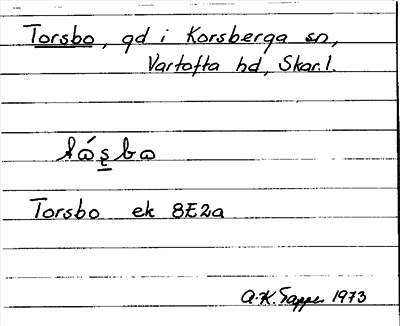 Torsbo, gd i Korsberga sn,
Vartofta hd, Skar.l.
Torsbo ek 8E2a
A.K. Tapper 1973